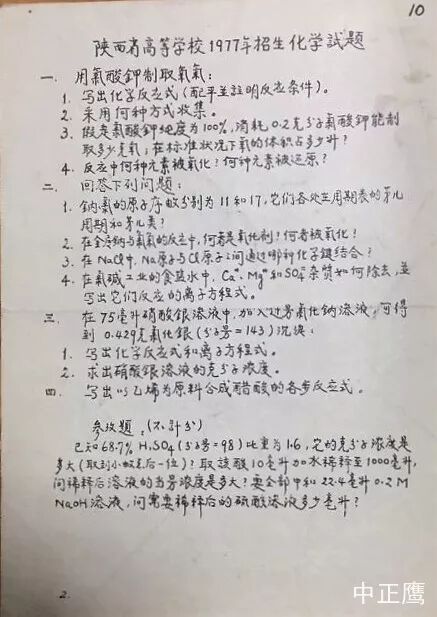 10
陕西省高等学校1977年招生化学試題
一、用氯酸鉀制取氧氣:
1. 写出化学反应式(配平並註明反应条件)。
2. 采用何种方式收集。
3. 假定氯酸鉀纯度为100%,消耗0.2克分子氯酸鉀能制
取多少克氧,在标准状况下氧的体积占多少升?
4. 反应中何种元素被氧化?何种元素被还原?
二、回答下列问题:
1. 鈉、氯的原子序数分别为11和17,它们各处在周期表的第几
周期和第几类?
2. 在金属钠与氯氣的反应中,何者是氧化剂?何者被氧化?
3. 在NaCl中,Na原子与Cl原子之间通过哪种化学鍵結合?
4. 在氯碱工业的食盐水中,Ca⁺⁺、Mg⁺⁺和SO₄⁼杂質如何除去,並
写出它们反应的离子方程式。
三、在75毫升硝酸銀溶液中,加入过量氯化钠溶液,可得
到0.429克氯化銀(分子量=143)沉淀:
1. 写出化学反应式和离子方程式。
2. 求出硝酸銀溶液的克分子浓度。
四、写出以乙烯为原料合成醋酸的各步反应式。
参考題:(不計分)
已知68.7% H₂SO₄(分子量=98)比重为1.6,它的克分子浓度是
多大(取到小数点后一位)?取該酸10毫升加水稀释至1000毫升,
问稀释后溶液的当量浓度是多大?要全部中和22.4毫升0.2M
NaOH溶液,问需要稀释后的硫酸溶液多少毫升?
2.
中正鹰